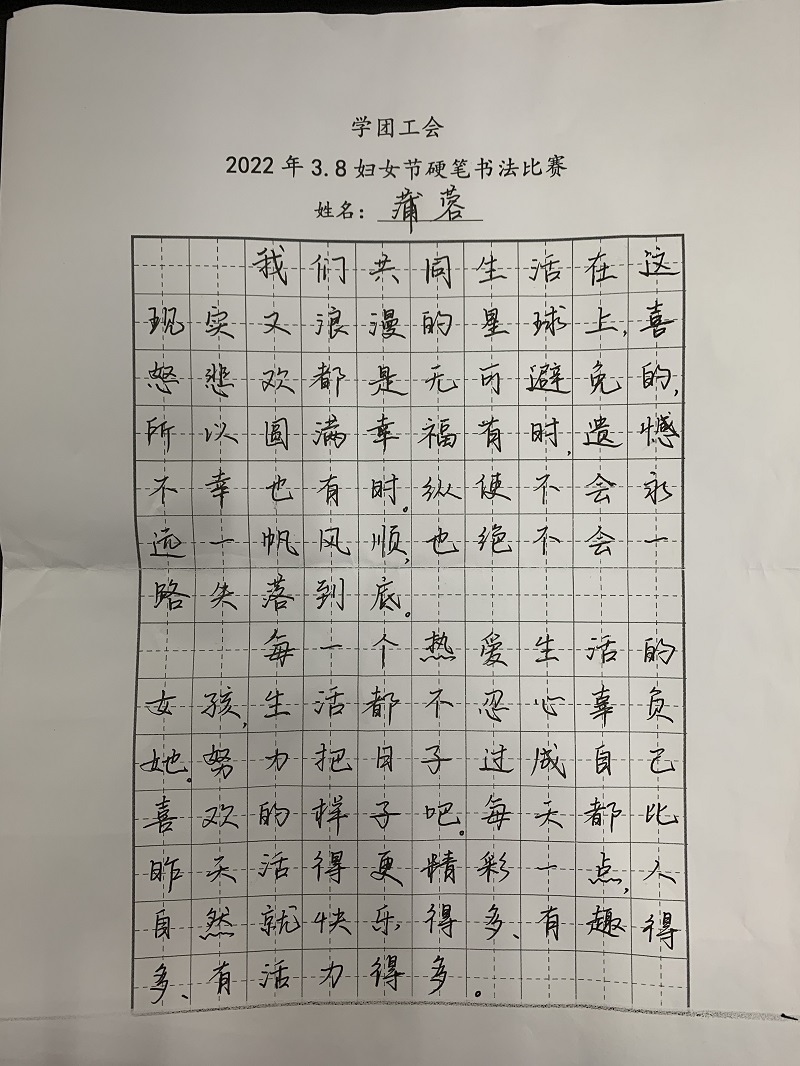 学团工会
2022年3.8妇女节硬笔书法比赛
姓名：蒲蓉
我们共同生活在这
现实又浪漫的星球上,喜
怒悲欢都是无可避免的,
所以圆满幸福有时,遗憾
不幸也有时。纵使不会永
远一帆风顺,也绝不会一
路失落到底。
每一个热爱生活的
女孩,生活都不忍心辜负
她。努力把日子过成自己
喜欢的样子吧。每天都比
昨天活得更精彩一点,人
自然就快乐得多、有趣得
多、有活力得多。